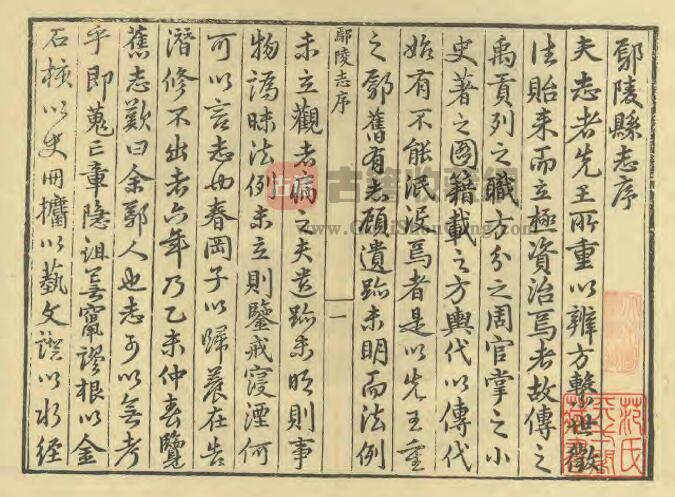 鄢陵縣志序
夫志者先王所重以辨方繫世徵
往貽来而立極資治焉者故傳之
禹貢列之職方分之周官掌之小
史著之圖籍載之方輿代以傳代
始有不能泯泯焉者是以先王重
之鄢舊有志顧遺跡未明而法例
鄢陵志序
一
未立觀者病之夫遺跡未明則事
物譌昧法例未立則鑒戒寖湮何
可以言志也春岡子以歸養在告
潛修不出者六年乃乙未仲春覽
舊志歎曰余鄢人也志可以無考
乎即蒐三章隐詛芟竄謬根以金
石核以史冊擴以藝文證以水經
古籍
www.GuJiShouCang.com
范氏
天一閣
藏書